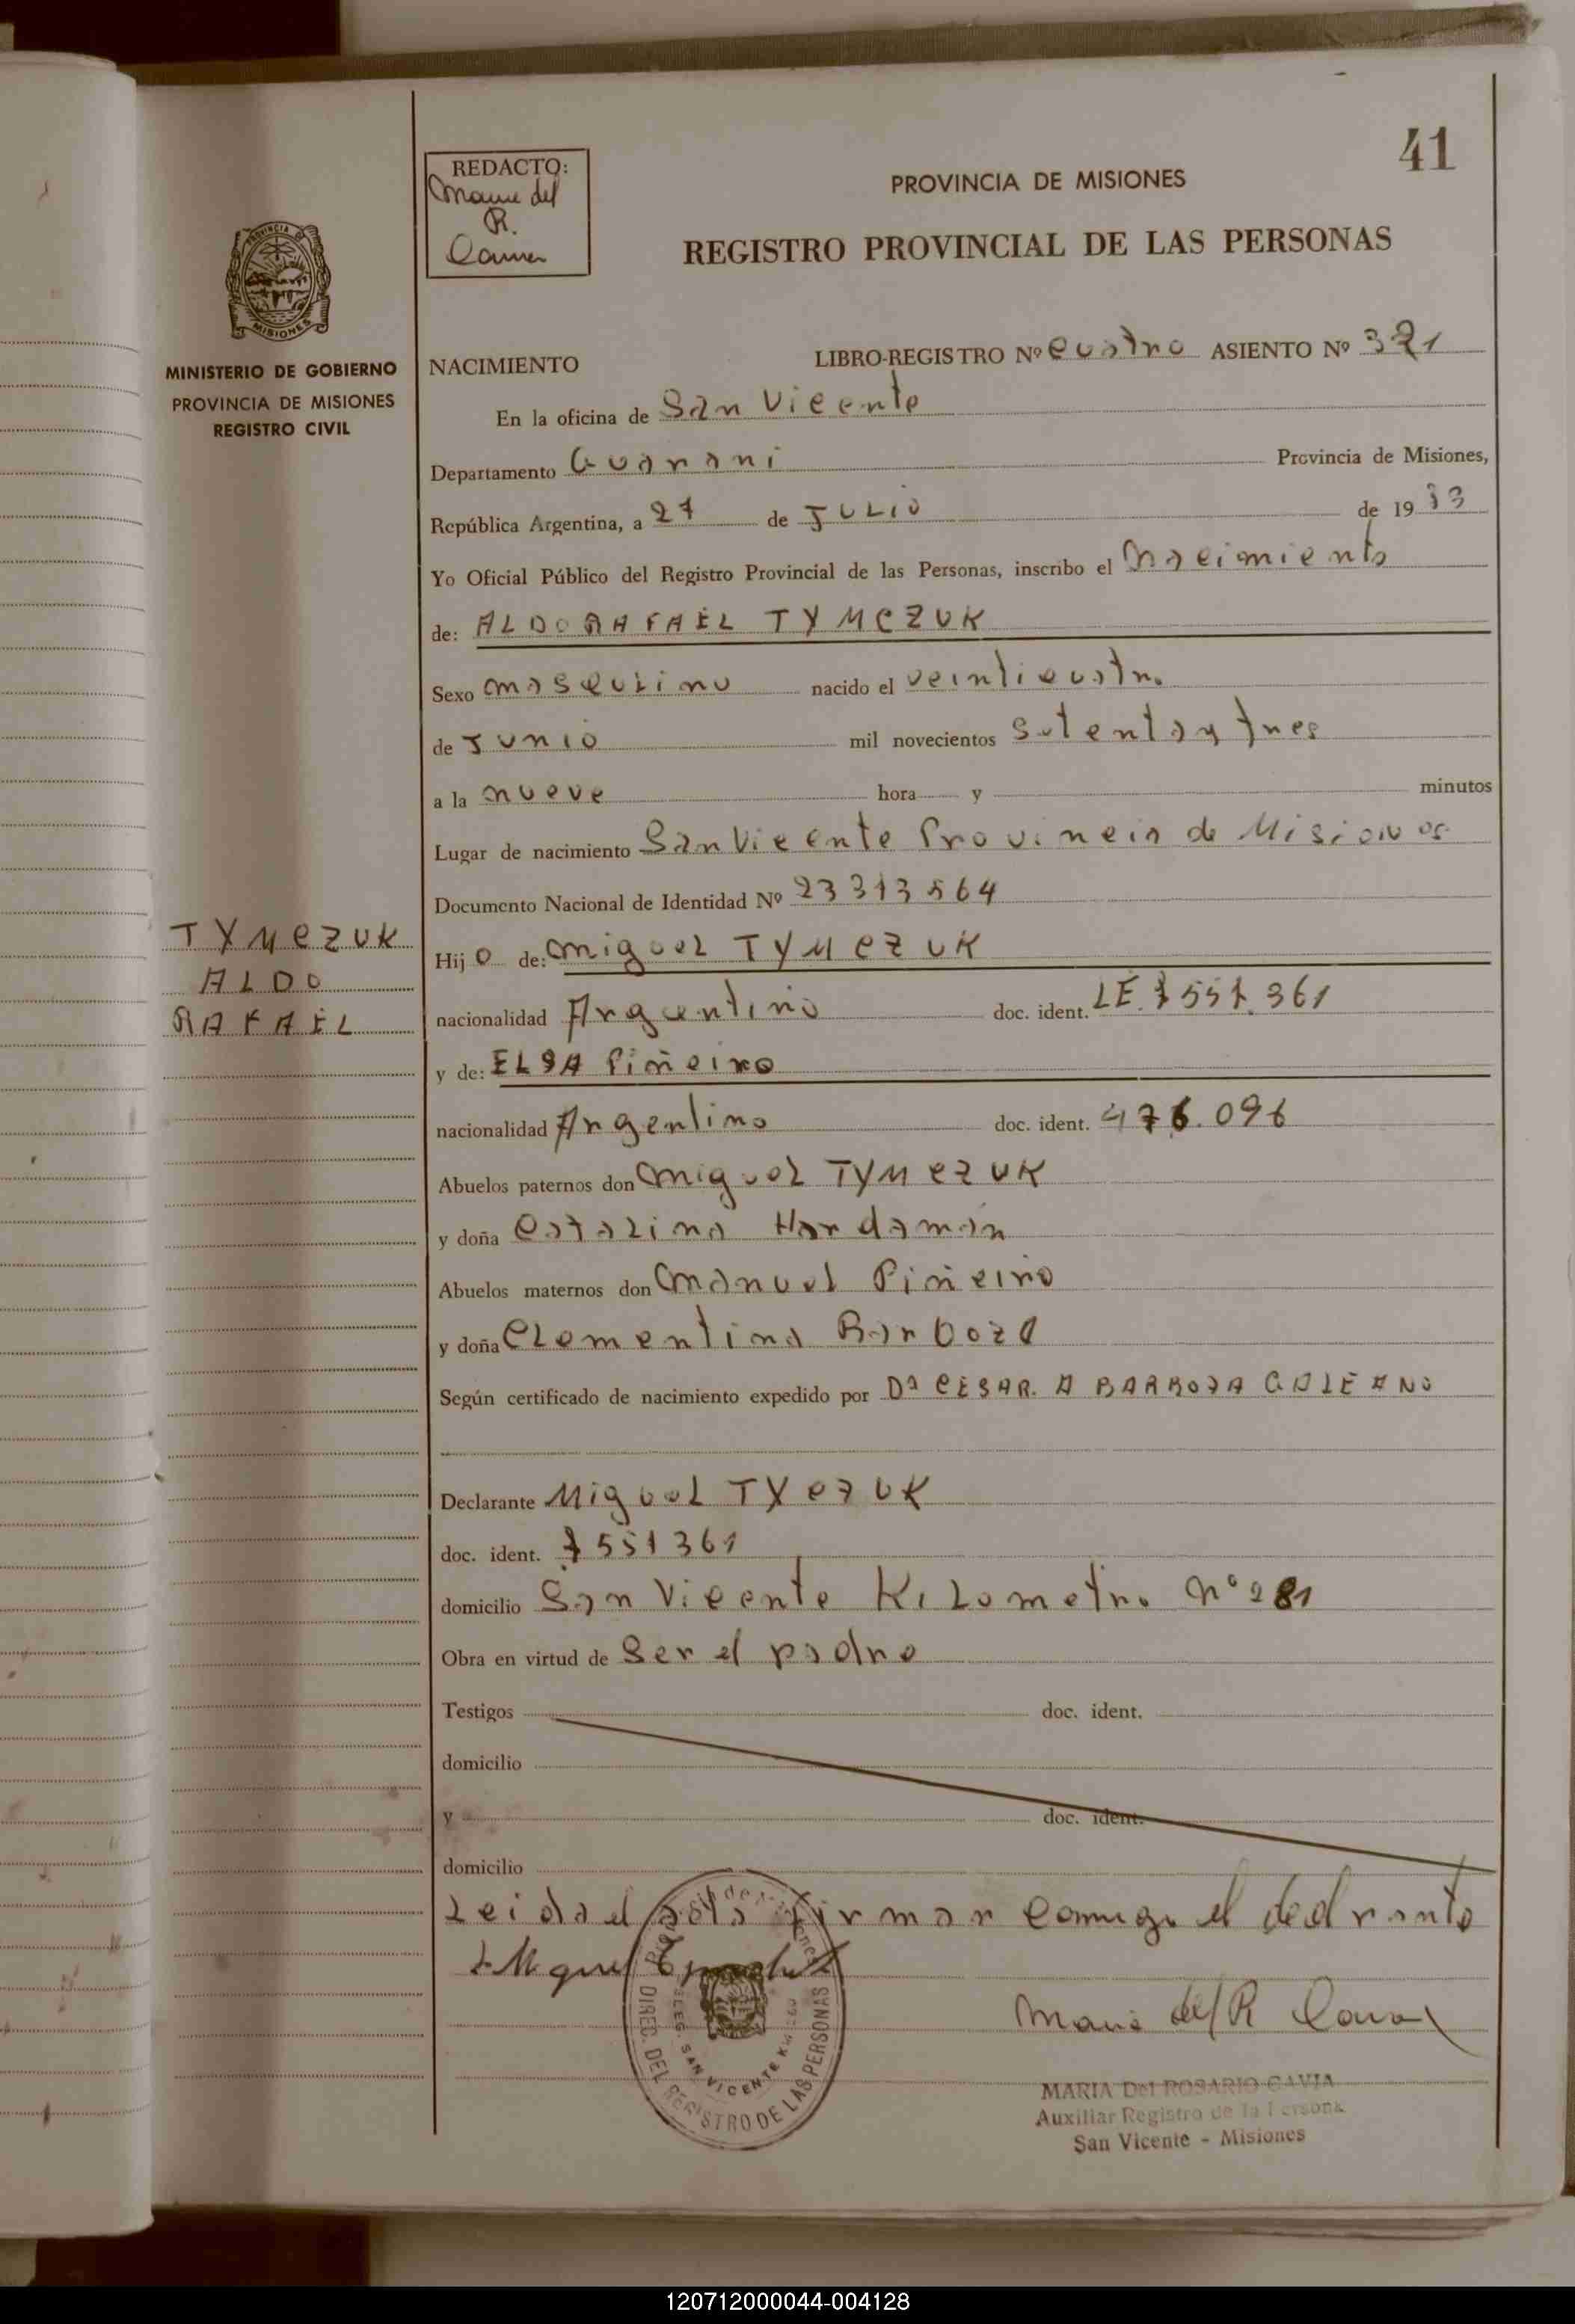 41
REDACTO:
PROVINCIA DE MISIONES
REGISTRO PROVINCIAL DE LAS PERSONAS
MISIONES
MINISTERIO DE GOBIERNO
PROVINCIA DE MISIONES
REGISTRO CIVIL
NACIMIENTO LIBRO-REGISTRO Nº cuatro ASIENTO Nº 321
En la oficina de San Vicente
Departamento Guarani Provincia de Misiones,
República Argentina, a 27 de JULIO de 19
Yo Oficial Público del Registro Provincial de las Personas, inscribo el Nacimiento
de: ALDO RAFAEL TYMCZUK
Sexo masculino nacido el veinticuatro
de Junio mil novecientos setenta y tres
a la nueve hora y minutos
Lugar de nacimiento San Vicente Provincia de Misiones
Documento Nacional de Identidad Nº 23313564
TYMCZUK
ALDO
RAFAEL
Hijo de: Miguel TYMCZUK
nacionalidad Argentino doc. ident. LE. 7551.361
y de: ELSA Piñeiro
nacionalidad Argentina doc. ident. 476.096
Abuelos paternos don Miguel TYMCZUK
y doña Catalina Hardaman
Abuelos maternos don Manuel Piñeiro
y doña Clementina Barboza
Según certificado de nacimiento expedido por Dª CESAR. A BARBOZA GALEANO
Declarante Miguel TYCZUK
doc. ident. 7551361
domicilio San Vicente Kilometro Nº 281
Obra en virtud de Ser el padre
Testigos doc. ident.
domicilio
y doc. ident.
domicilio
Leida el acta firman comigo el declrante
Miguel
DIREC. DEL REGISTRO DE LAS PERSONAS
SAN VICENTE
Maria del R
MARIA Del ROSARIO GAVIA
Auxiliar Registro de la Persona
San Vicente - Misiones
120712000044-004128